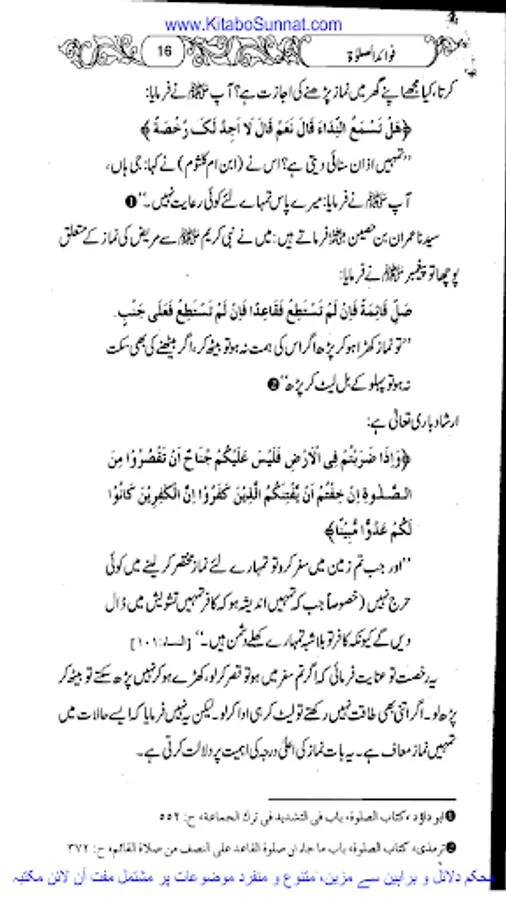 www.KitaboSunnat.com
فوائد الصلوٰۃ
16
کرتا، کیا مجھے اپنے گھر میں نماز پڑھنے کی اجازت ہے؟ آپ ﷺ نے فرمایا:
﴿هَلْ تَسْمَعُ النِّدَاءَ قَالَ نَعَمْ قَالَ لَا اَجِدُ لَكَ رُخْصَةً﴾
”تمہیں اذان سنائی دیتی ہے؟ اس نے (ابن ام کلثوم) نے کہا: جی ہاں،
آپ ﷺ نے فرمایا: میرے پاس تمہارے لئے کوئی رعایت نہیں۔“ ❶
سیدنا عمران بن حصین ؓ فرماتے ہیں: میں نے نبی کریم ﷺ سے مریض کی نماز کے متعلق
پوچھا تو پیغمبر ﷺ نے فرمایا:
صَلِّ قَائِمَةً فَاِنْ لَمْ تَسْتَطِعْ فَقَاعِدًا فَاِنْ لَمْ تَسْتَطِعْ فَعَلَى جَنْبٍ.
”تو نماز کھڑا ہو کر پڑھ اگر اس کی ہمت نہ ہو تو بیٹھ کر، اگر بیٹھنے کی بھی سکت
نہ ہو تو پہلو کے بل لیٹ کر پڑھ“ ❷
ارشاد باری تعالیٰ ہے:
﴿وَاِذَا ضَرَبْتُمْ فِی الْاَرْضِ فَلَیْسَ عَلَیْكُمْ جُنَاحٌ اَنْ تَقْصُرُوْا مِنَ
الصَّلٰوةِ اِنْ خِفْتُمْ اَنْ یَّفْتِنَكُمُ الَّذِیْنَ كَفَرُوْا اِنَّ الْكٰفِرِیْنَ كَانُوْا
لَكُمْ عَدُوًّا مُّبِیْنًا﴾
”اور جب تم زمین میں سفر کرو تو تمہارے لئے نماز مختصر کر لینے میں کوئی
حرج نہیں (خصوصاً جب کہ تمہیں اندیشہ ہو کہ کافر تمہیں تشویش میں ڈال
دیں گے کیونکہ کافر تو بلاشبہ تمہارے کھلے دشمن ہیں۔“ [النساء:۱۰۱]
یہ رخصت تو عنایت فرمائی کہ اگر تم سفر میں ہو تو قصر کر لو، کھڑے ہو کر نہیں پڑھ سکتے تو بیٹھ کر
پڑھ لو۔ اگر اتنی بھی طاقت نہیں رکھتے تو لیٹ کر ہی ادا کر لو۔ لیکن یہ نہیں فرمایا کہ ایسے حالات میں
تمہیں نماز معاف ہے۔ یہ بات نماز کی اعلیٰ درجہ کی اہمیت پر دلالت کرتی ہے۔
❶ ابو داؤد، کتاب الصلوة، باب فی التشدید فی ترك الجماعة، ح: ٥٥٢
❷ ترمذی، کتاب الصلوة، باب ما جاء ان صلوة القاعد على النصف من صلاة القائم، ح: ٣٧٢
محکم دلائل و براہین سے مزین، متنوع و منفرد موضوعات پر مشتمل مفت آن لائن مکتبہ